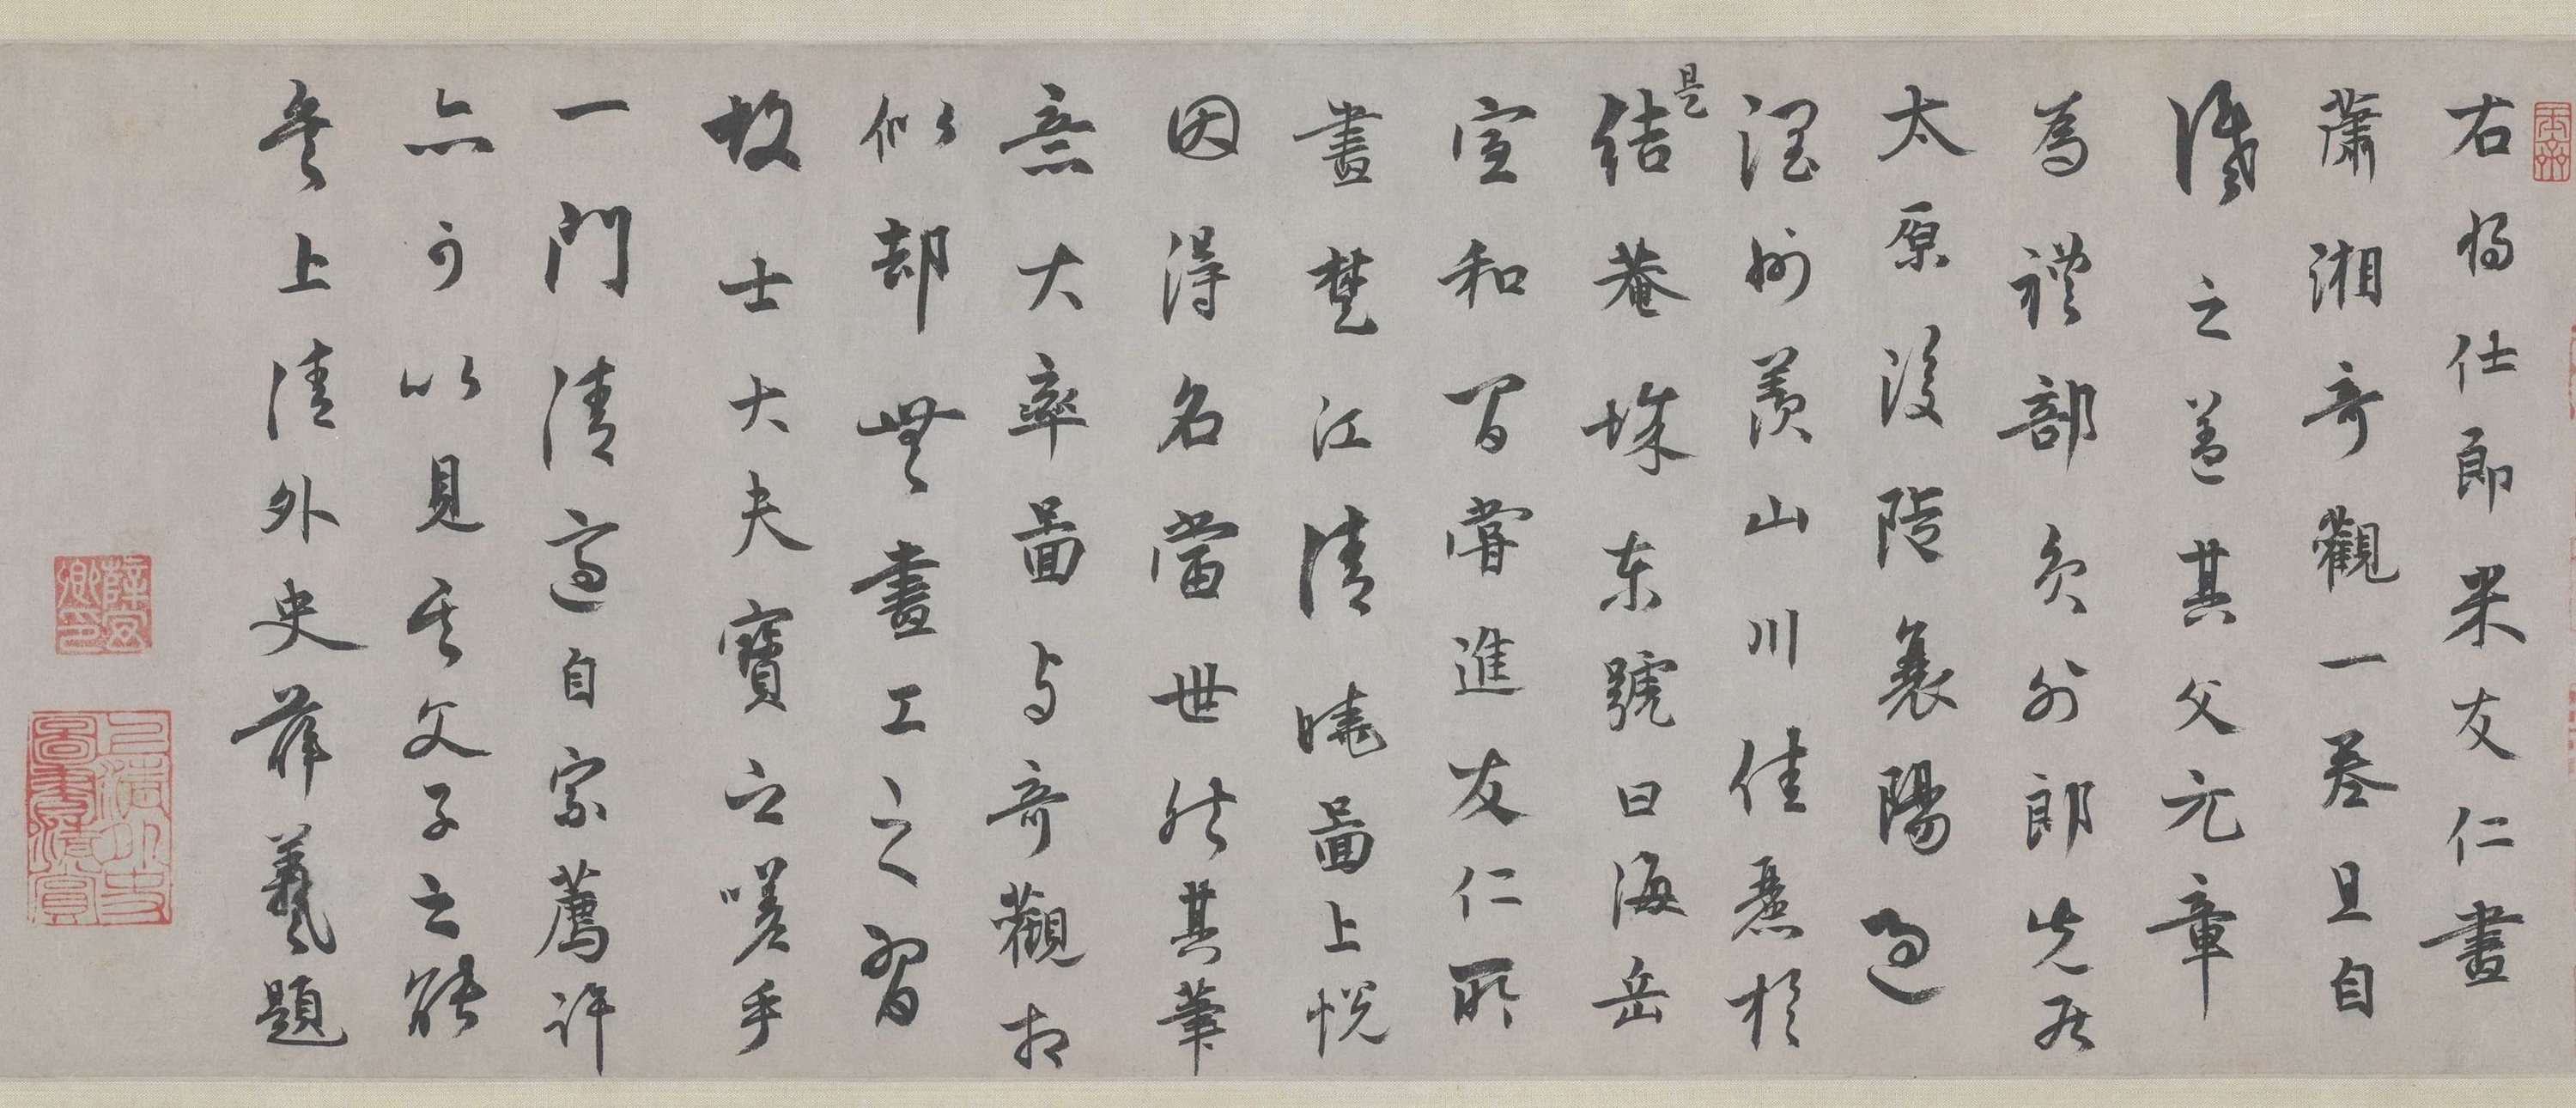 右將仕郎米友仁畫
蕭湘奇觀一卷且自
識之蓋其父元章
為禮部員外郎先居
太原後徙襄陽過
潤州羨山川佳麗於是
結菴城東號曰海岳
宣和間嘗進友仁所
畫楚江清曉圖上悅
因得名當世然其筆
意大率圖与奇觀相
似却無畫工之習
故士大夫寶之嗟乎
一門清適自宗薦許
亦可以見其父子之能
矣上清外史薛羲題